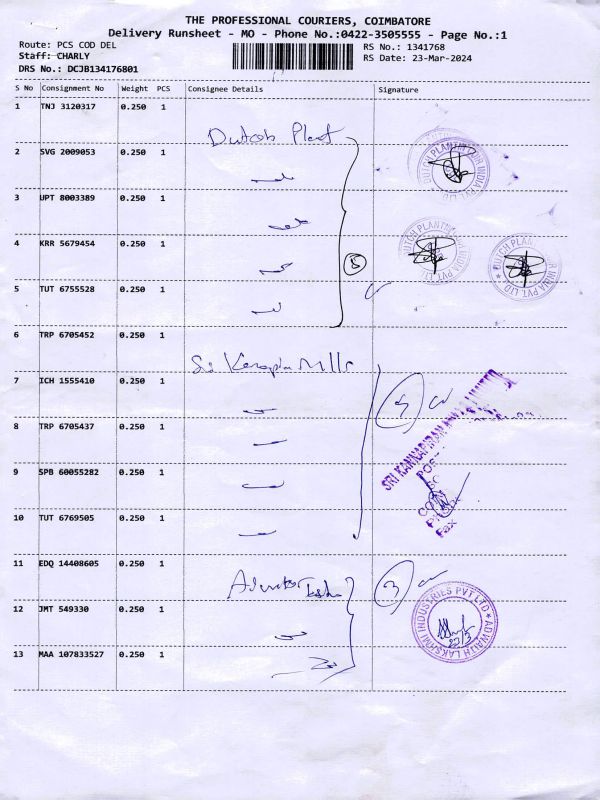 THE PROFESSIONAL COURIERS, COIMBATORE
Delivery Runsheet - MO - Phone No.:0422-3505555 - Page No.:1
Route: PCS COD DEL
RS No.: 1341768
Staff: CHARLY
RS Date: 23-Mar-2024
DRS No.: DCJB134176801
S No Consignment No Weight PCS Consignee Details Signature
1 TNJ 3120317 0.250 1
Dutch Plant
2 SVG 2009053 0.250 1
DUTCH PLANTIN COIR INDIA PVT. LTD
3 UPT 8003389 0.250 1
4 KRR 5679454 0.250 1
5
5 TUT 6755528 0.250 1
6 TRP 6705452 0.250 1
Mills
7 ICH 1555410 0.250 1
5
SRI KANNAPIRAN MILLS LIMITED
8 TRP 6705437 0.250 1
9 SPB 60055282 0.250 1
10 TUT 6769505 0.250 1
Fax
11 EDQ 14408605 0.250 1
3
12 JMT 549330 0.250 1
ADWAITH LAKSHMI INDUSTRIES PVT LTD
23/3
13 MAA 107833527 0.250 1